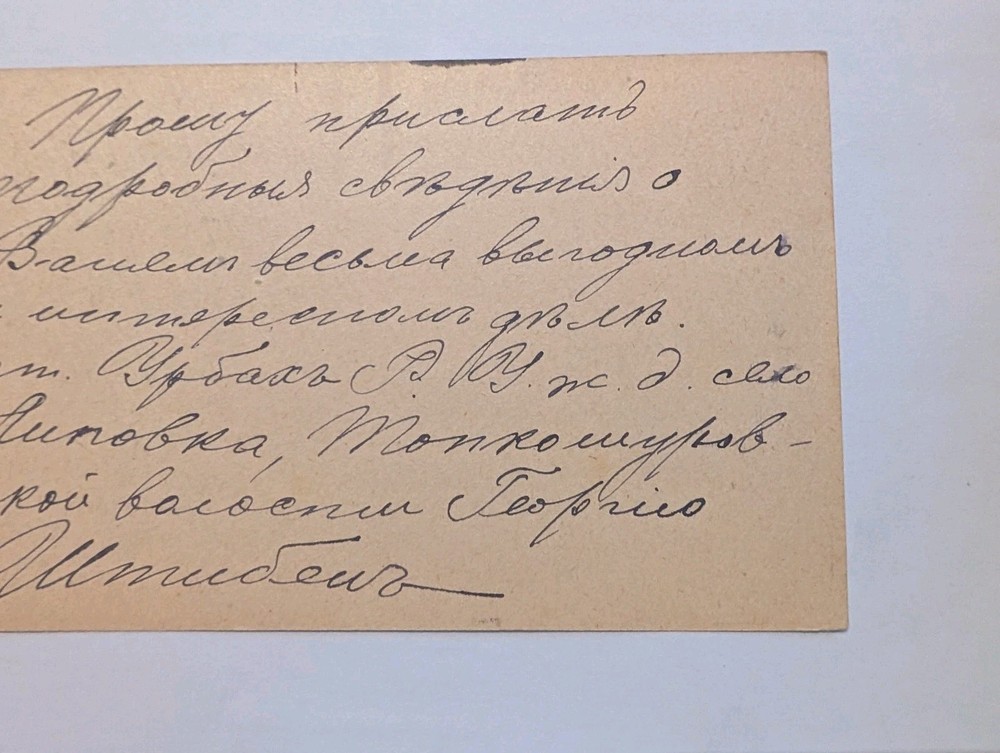 Прошу прислать
подробныя свѣдѣнія о
Вашемъ весьма выгодномъ
и интересномъ дѣлѣ.
ст. Урбахъ Р. У. ж. д. село
Липовка, Топкошуров-
ской волости Георгію
Штибенъ